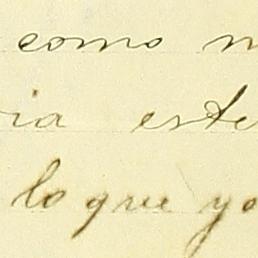 como
este
lo que yo